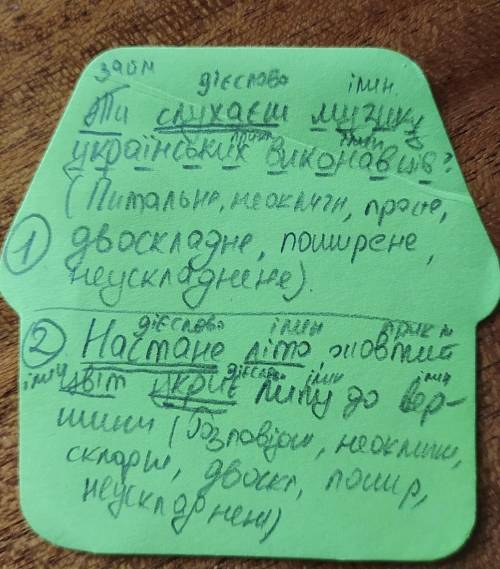 займ дієслово імен
Ти слухаєш музику
прикм імен
українських виконавців?
(Питальне, неокличн, просте,
1 двоскладне, поширене,
неускладнене).
дієслово імен прикм
2 Настане літо жовтий
імен дієслово імен імен
цвіт укриє липу до вер-
шини (Розповідн, неокличн,
складн, двоскл, пошир,
неускладнені)